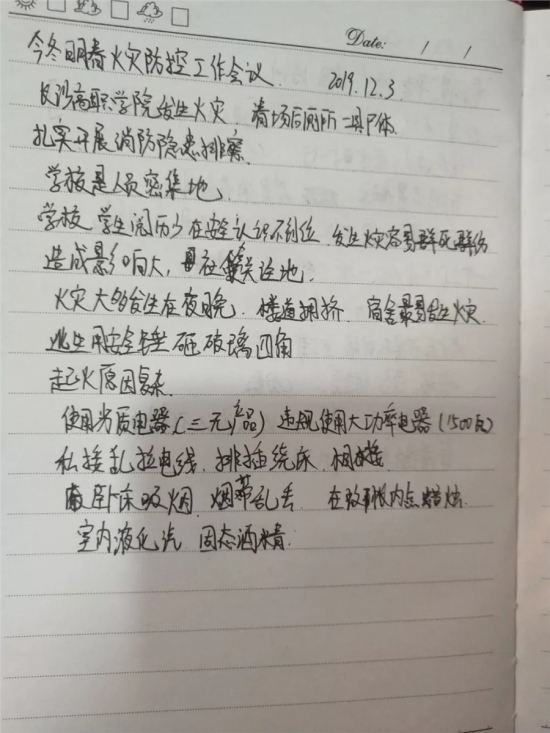 Date: / /
今冬明春火灾防控工作会议 2019.12.3.
长沙高职学院发生火灾 着场后厕所一具尸体
扎实开展消防隐患排察
学校是人员密集地.
学校 学生阅历少 在安全认识不到位 发生火灾容易群死群伤
造成影响大, 社会关注地.
火灾大多发生在夜晚 楼道拥挤 宿舍最易发生火灾
逃生用安全锤 砸玻璃四角
起火原因复杂.
使用劣质电器(三无产品) 违规使用大功率电器(1500瓦)
私接乱拉电线. 排插绕床. 相接
卧床吸烟. 烟蒂乱丢 在蚊帐内点蜡烛.
室内液化汽 固态酒精.